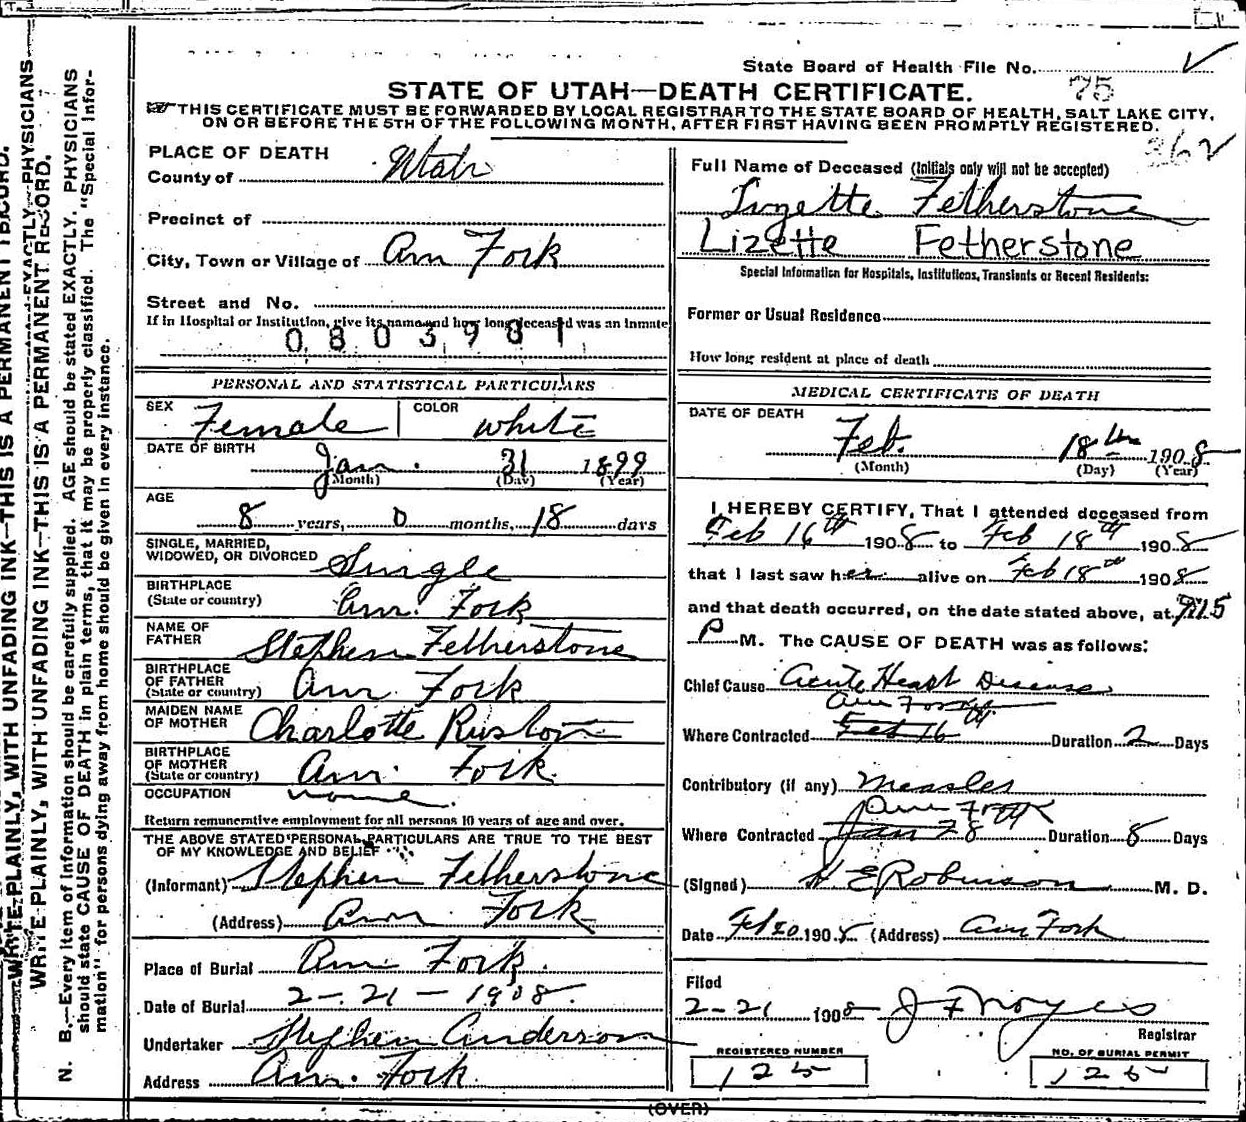 WRITE PLAINLY, WITH UNFADING INK—THIS IS A PERMANENT RECORD.
N. B.—Every item of Information should be carefully supplied. AGE should be stated EXACTLY. PHYSICIANS
should state CAUSE OF DEATH in plain terms, that it may be properly classified. The "Special Infor-
mation" for persons dying away from home should be given in every instance.
State Board of Health File No.
75
STATE OF UTAH—DEATH CERTIFICATE.
THIS CERTIFICATE MUST BE FORWARDED BY LOCAL REGISTRAR TO THE STATE BOARD OF HEALTH, SALT LAKE CITY,
ON OR BEFORE THE 5TH OF THE FOLLOWING MONTH, AFTER FIRST HAVING BEEN PROMPTLY REGISTERED.
362
PLACE OF DEATH
County of Utah
Precinct of
City, Town or Village of Am Fork
Street and No.
If in Hospital or Institution, give its name and how long deceased was an inmate
0803981
PERSONAL AND STATISTICAL PARTICULARS
SEX Female COLOR white
DATE OF BIRTH Jan. 31 1899
(Month) (Day) (Year)
AGE 8 years, 0 months, 18 days
SINGLE, MARRIED,
WIDOWED, OR DIVORCED Single
BIRTHPLACE
(State or country) Am. Fork
NAME OF
FATHER Stephen Fetherstone
BIRTHPLACE
OF FATHER
(State or country) Am Fork
MAIDEN NAME
OF MOTHER Charlotte
BIRTHPLACE
OF MOTHER
(State or country) Am. Fork.
OCCUPATION none.
Return remunerative employment for all persons 10 years of age and over.
THE ABOVE STATED PERSONAL PARTICULARS ARE TRUE TO THE BEST
OF MY KNOWLEDGE AND BELIEF
(Informant) Stephen Fetherstone
(Address) Am Fork
Place of Burial Am Fork.
Date of Burial 2-21-1908.
Undertaker Stephen Anderson
Address Am. Fork.
Full Name of Deceased (Initials only will not be accepted)
Lizette Fetherstone
Lizette Fetherstone
Special Information for Hospitals, Institutions, Transients or Recent Residents:
Former or Usual Residence
How long resident at place of death
MEDICAL CERTIFICATE OF DEATH
DATE OF DEATH
Feb. 18th 1908
(Month) (Day) (Year)
I HEREBY CERTIFY, That I attended deceased from
Feb 16th 1908 to Feb 18th 1908
that I last saw her alive on Feb 18th 1908
and that death occurred, on the date stated above, at 9:15
P M. The CAUSE OF DEATH was as follows:
Chief Cause Acute Heart Disease
Am Fork
Where Contracted Feb 16 Duration 2 Days
Contributory (if any) Measles
Am Fork
Where Contracted Jan 28 Duration 8 Days
(Signed) H E Robinson M. D.
Date Feb 20 1908 (Address) Am Fork
Filed
2-21 1908 J F Noyes
Registrar
REGISTERED NUMBER
125
NO. OF BURIAL PERMIT
125
(OVER)